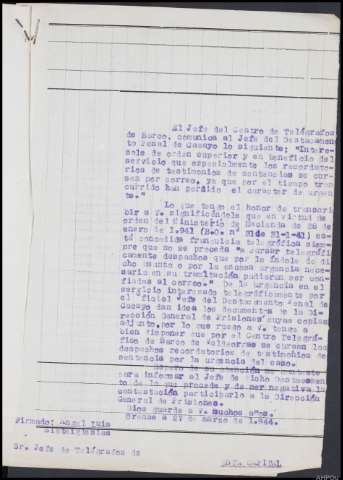 El Jefe del Centro de Telégrafos
de Barco, comunica al Jefe del Destacamen-
to Penal de Casayo lo siguiente: "Intere-
sale de orden superior y en beneficio del
servicio que especialmente los recordato-
rios de testimonios de sentencias se cur-
sen por correo, ya que por el tiempo tran
currido han perdido el caracter de urgen-
te."
Lo que tengo el honor de transcri-
bir a V. significándole que en virtud de
orden del Ministerio de Hacienda de 28 de
enero de 1.941 (B.O. nº 31 de 31-1-41) es
tá concedida franquicia telegráfica siem-
pre que no se proceda "a cursar telegráfi-
camente despachos que por la índole de di-
cho asunto o por la escasa urgencia nece-
saria en su tramitación pudieran ser con-
fiados al correo." De la urgencia en el
servicio interesado telegráficamente por
el Oficial Jefe del Destacamento Penal de
Casayo dan idea los documentos de la Di-
rección General de Prisiones cuyas copias
adjunto, por lo que ruego a V. tenga a
bien disponer que por el Centro Telegrá-
fico de Barco de Valdeorras se cursen los
despachos recordatorios de testimonios de
sentencia por la urgencia del caso.
contestación
para informar al Jefe de dicho Destacamen-
to de lo que proceda y de ser negativa la
contestación participarlo a la Dirección
General de Prisiones.
Dios guarde a V. muchos años.
Orense a 27 de marzo de 1.944.
Firmado: Angel Luis
Sr. Jefe de Telégrafos de
Capital
AHPOu